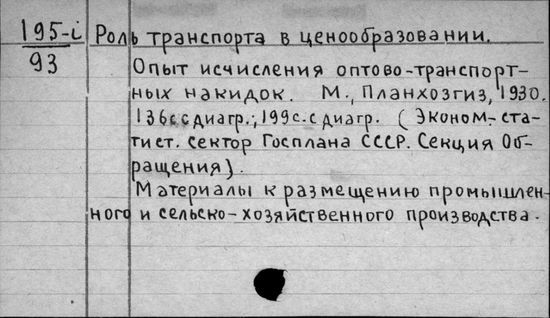 195-i Роль транспорта в ценообразовании.
93
Опыт исчисления оптово-транспорт-
ных накидок. М., Планхозгиз, 1930.
136с с диагр.; 199с. с диагр. (Эконом.-ста-
тист. сектор Госплана СССР. Секция Об-
ращения).
Материалы к размещению промышлен-
ного и сельско-хозяйственного производства.